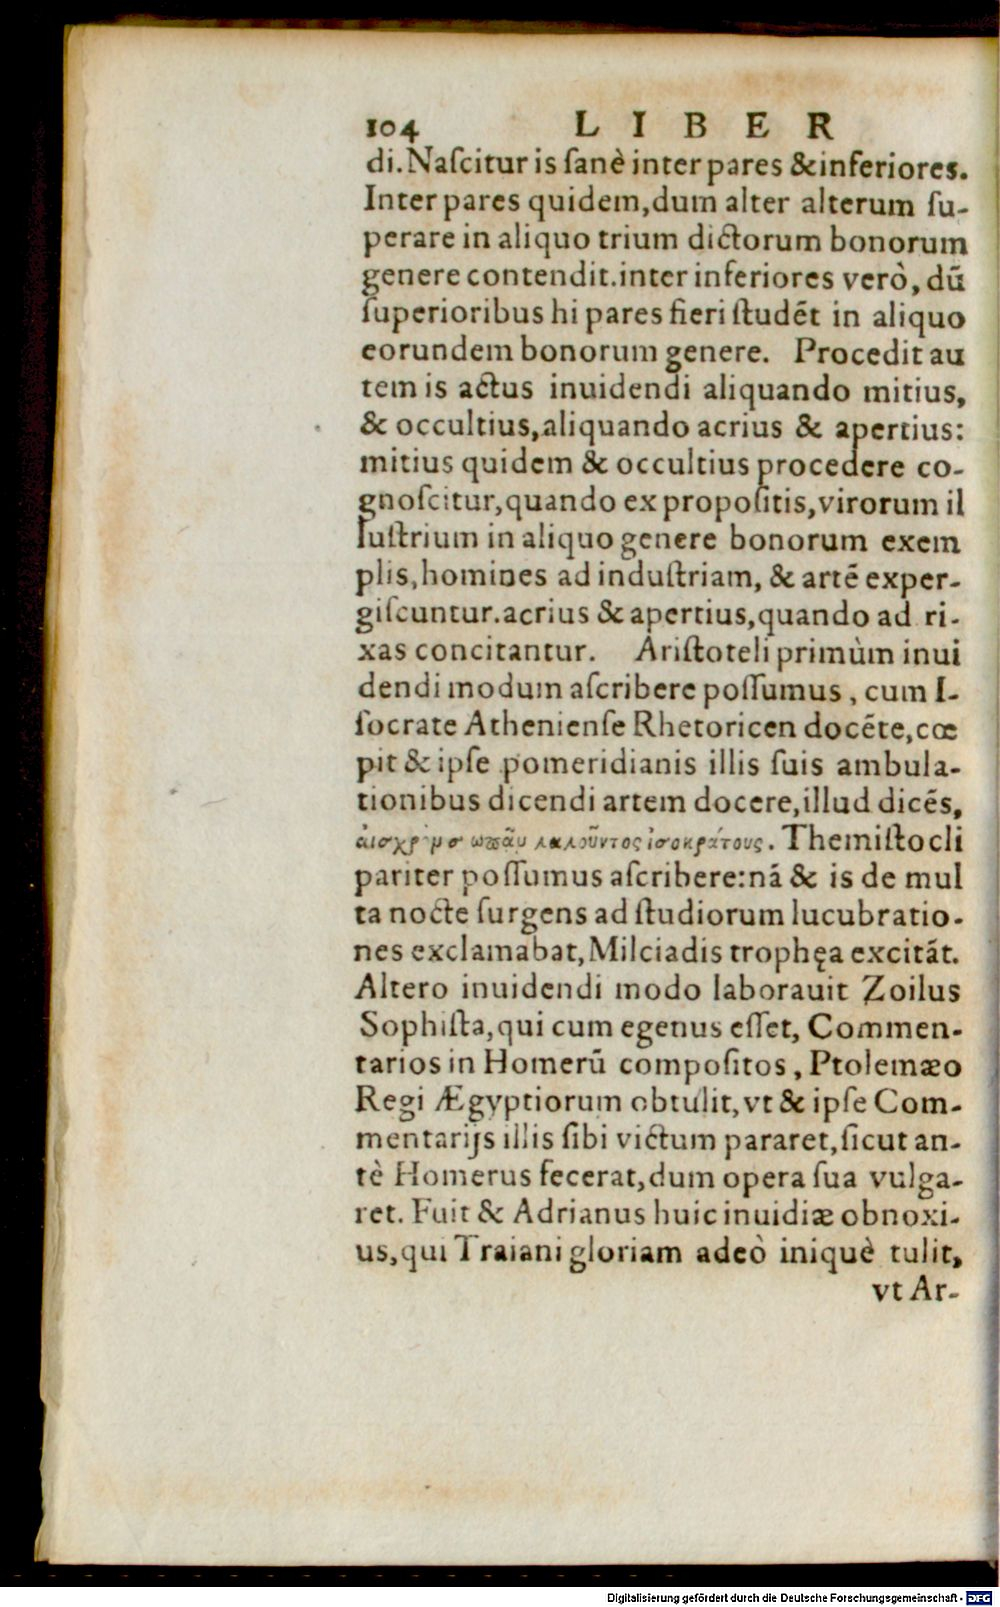 104 LIBER
di. Naſcitur is ſanè inter pares & inferiores.
Inter pares quidem, dum alter alterum ſu-
perare in aliquo trium dictorum bonorum
genere contendit. inter inferiores verò, dū
ſuperioribus hi pares fieri ſtudēt in aliquo
eorundem bonorum genere. Procedit au
tem is actus inuidendi aliquando mitius,
& occultius, aliquando acrius & apertius:
mitius quidem & occultius procedere co-
gnoſcitur, quando ex propoſitis, virorum il
luſtrium in aliquo genere bonorum exem
plis, homines ad induſtriam, & artē exper-
giſcuntur. acrius & apertius, quando ad ri-
xas concitantur. Ariſtoteli primùm inui
dendi modum aſcribere poſſumus, cum I-
ſocrate Athenienſe Rhetoricen docēte, cœ
pit & ipſe pomeridianis illis ſuis ambula-
tionibus dicendi artem docere, illud dicēs,
λαλοῦντος ἰσοκράτους. Themiſtocli
pariter poſſumus aſcribere: nā & is de mul
ta nocte ſurgens ad ſtudiorum lucubratio-
nes exclamabat, Milciadis trophęa excitāt.
Altero inuidendi modo laborauit Zoilus
Sophiſta, qui cum egenus eſſet, Commen-
tarios in Homerū compoſitos, Ptolemæo
Regi Ægyptiorum obtulit, vt & ipſe Com-
mentarijs illis ſibi victum pararet, ſicut an-
tè Homerus fecerat, dum opera ſua vulga-
ret. Fuit & Adrianus huic inuidiæ obnoxi-
us, qui Traiani gloriam adeò iniquè tulit,
vt Ar-
Digitalisierung gefördert durch die Deutsche Forschungsgemeinschaft - DFG